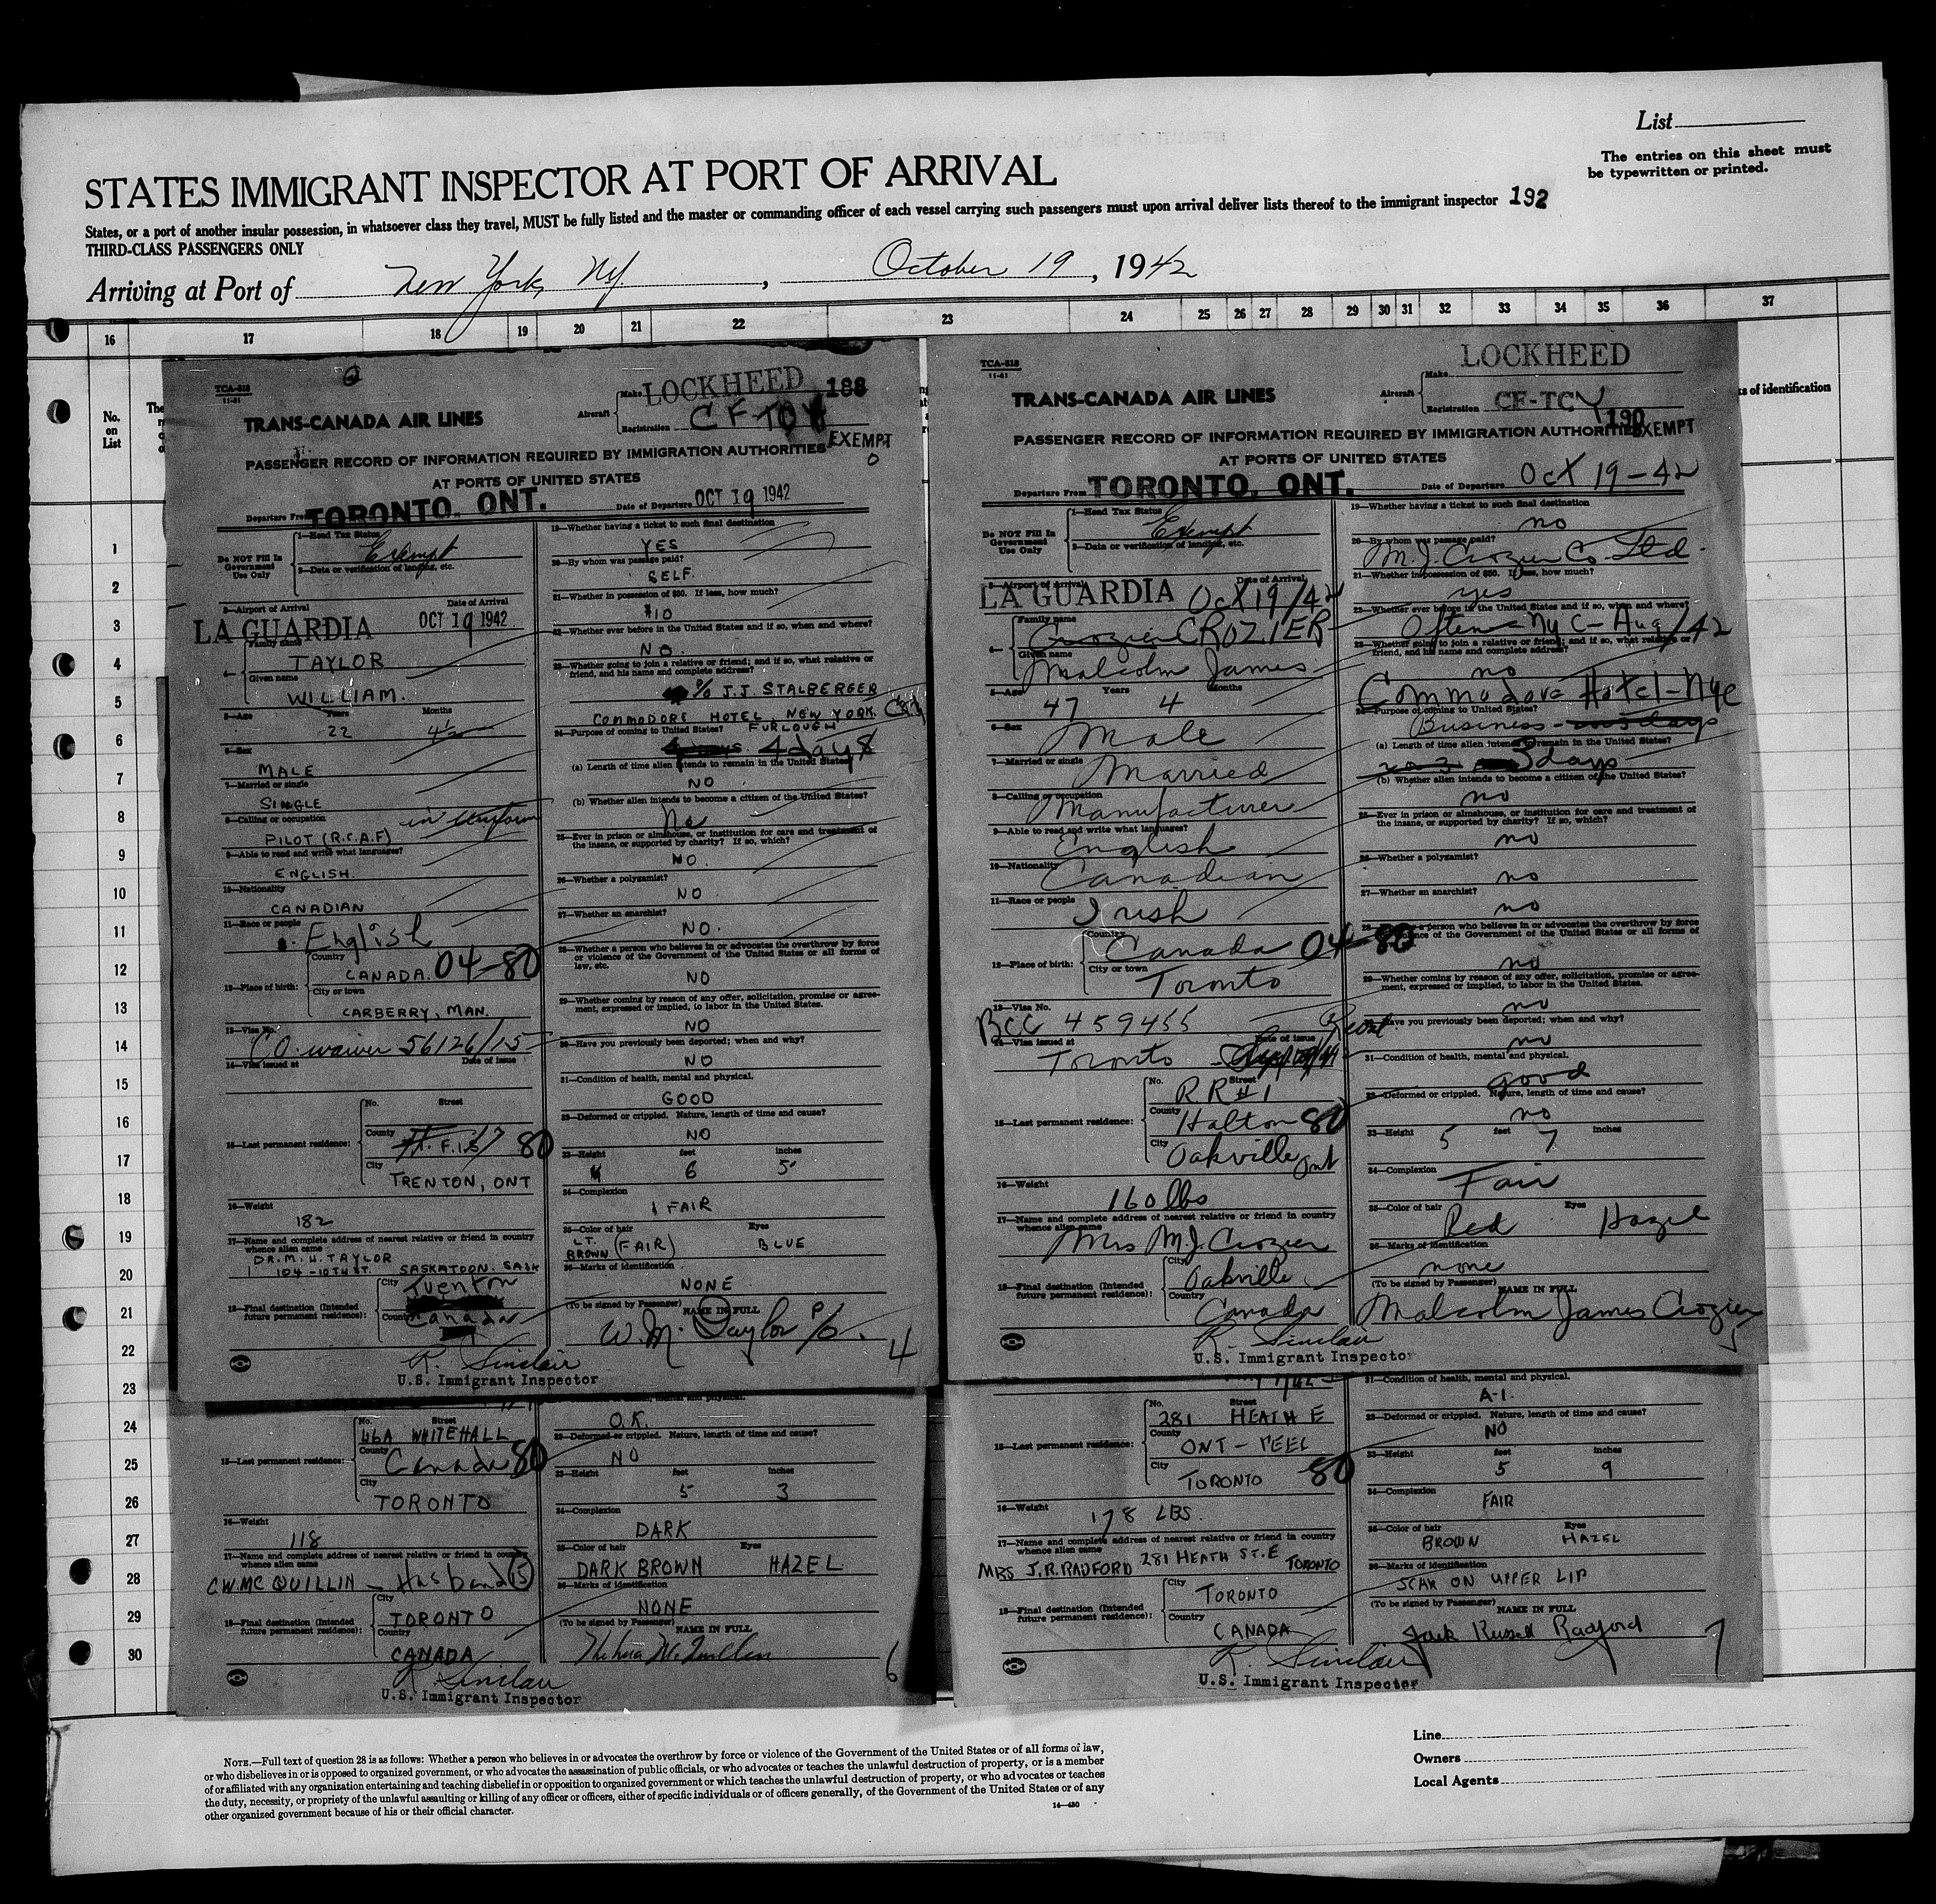 List
The entries on this sheet must
be typewritten or printed.
STATES IMMIGRANT INSPECTOR AT PORT OF ARRIVAL
States, or a port of another insular possession, in whatsoever class they travel, MUST be fully listed and the master or commanding officer of each vessel carrying such passengers must upon arrival deliver lists thereof to the immigrant inspector 192
THIRD-CLASS PASSENGERS ONLY
Arriving at Port of New York, NY. , October 19 , 1942
16 17 18 19 20 21 22 23 24 25 26 27 28 29 30 31 32 33 34 35 36 37
No.
on
List
The
ks of identification
1
2
3
4
5
6
7
8
9
10
11
12
13
14
15
16
17
18
19
20
21
22
23
24
25
26
27
28
29
30
TCA-818
11-41
Make LOCKHEED 188
TRANS-CANADA AIR LINES
Aircraft
Registration CF-TCY
EXEMPT
PASSENGER RECORD OF INFORMATION REQUIRED BY IMMIGRATION AUTHORITIES
AT PORTS OF UNITED STATES
Departure From TORONTO, ONT. Date of Departure OCT 19 1942
Do NOT Fill In
Government
Use Only
1—Head Tax Status
Exempt
2—Data or verification of landing, etc.
3—Airport of Arrival Date of Arrival
LA GUARDIA OCT 19 1942
4— Family name
TAYLOR
Given name
WILLIAM.
5—Age Years Months
22 4½
6—Sex
MALE
7—Married or single
SINGLE
8—Calling or occupation in Uniform
PILOT (R.C.A.F)
9—Able to read and write what languages?
ENGLISH.
10—Nationality
CANADIAN
11—Race or people
English
12—Place of birth:
Country
CANADA. 04-80
City or town
CARBERRY, MAN.
13—Visa No.
C.O. waiver 56126/15
14—Visa issued at Date of issue
15—Last permanent residence:
No. Street
County
80
City
TRENTON, ONT
16—Weight
182
17—Name and complete address of nearest relative or friend in country
whence alien came
DR. M. H. TAYLOR
104-10TH ST. SASKATOON. SASK
18—Final destination (Intended
future permanent residence):
City
Trenton
Country
Canada
R. Sinclair
U.S. Immigrant Inspector
19—Whether having a ticket to such final destination
YES
20—By whom was passage paid?
SELF.
21—Whether in possession of $50. If less, how much?
$10
22—Whether ever before in the United States and if so, when and where?
NO.
23—Whether going to join a relative or friend; and if so, what relative or
friend, and his name and complete address?
% J.J. STALBERGER
COMMODORE HOTEL NEW YORK.
24—Purpose of coming to United States? FURLOUGH
4 days
(a) Length of time alien intends to remain in the United States?
NO
(b) Whether alien intends to become a citizen of the United States?
No
25—Ever in prison or almshouse, or institution for care and treatment of
the insane, or supported by charity? If so, which?
NO.
26—Whether a polygamist?
NO
27—Whether an anarchist?
NO.
28—Whether a person who believes in or advocates the overthrow by force
or violence of the Government of the United States or all forms of
law, etc.
NO
29—Whether coming by reason of any offer, solicitation, promise or agree-
ment, expressed or implied, to labor in the United States.
NO
30—Have you previously been deported; when and why?
NO
31—Condition of health, mental and physical.
GOOD
32—Deformed or crippled. Nature, length of time and cause?
NO
33—Height feet inches
6 5"
34—Complexion
FAIR
35—Color of hair Eyes
LT.
BROWN (FAIR) BLUE
36—Marks of identification
NONE
(To be signed by Passenger) NAME IN FULL
W. M. Taylor P/O.
4
TCA-818
11-41
Make LOCKHEED
TRANS-CANADA AIR LINES
Aircraft
Registration CF-TCY
190
EXEMPT
PASSENGER RECORD OF INFORMATION REQUIRED BY IMMIGRATION AUTHORITIES
AT PORTS OF UNITED STATES
Departure From TORONTO, ONT. Date of Departure Oct 19-42
Do NOT Fill In
Government
Use Only
1—Head Tax Status
Exempt
2—Data or verification of landing, etc.
3—Airport of Arrival Date of Arrival
LA GUARDIA Oct 19/42
4— Family name
Crozier CROZIER
Given name
Malcolm James
5—Age Years Months
47 4
6—Sex
Male
7—Married or single
Married
8—Calling or occupation
Manufacturer
9—Able to read and write what languages?
English
10—Nationality
Canadian
11—Race or people
Irish
12—Place of birth:
Country
Canada 04-80
City or town
Toronto
13—Visa No.
BCC 459455
14—Visa issued at Date of issue
Toronto
15—Last permanent residence:
No. Street
RR#1
County
Halton 80
City
Oakville Ont
16—Weight
160 lbs
17—Name and complete address of nearest relative or friend in country
whence alien came
Mrs M.J. Crozier
18—Final destination (Intended
future permanent residence):
City
Oakville
Country
Canada
R. Sinclair
U.S. Immigrant Inspector
19—Whether having a ticket to such final destination
no
20—By whom was passage paid?
M.J. Crozier Co Ltd.
21—Whether in possession of $50. If less, how much?
yes
22—Whether ever before in the United States and if so, when and where?
Often - NYC - Aug/42
23—Whether going to join a relative or friend; and if so, what relative or
friend, and his name and complete address?
no
Commodore Hotel - Nyc
24—Purpose of coming to United States?
Business - 3 days
(a) Length of time alien intends to remain in the United States?
3 days
(b) Whether alien intends to become a citizen of the United States?
no
25—Ever in prison or almshouse, or institution for care and treatment of
the insane, or supported by charity? If so, which?
no
26—Whether a polygamist?
no
27—Whether an anarchist?
no
28— a person who believes in or advocates the overthrow by force
lence of the Government of the United States or all forms of
no
29—Whether coming by reason of any offer, solicitation, promise or agree-
ment, expressed or implied, to labor in the United States.
no
Have you previously been deported; when and why?
no
31—Condition of health, mental and physical.
good
32—Deformed or crippled. Nature, length of time and cause?
no
33—Height 5 feet 7 inches
34—Complexion
Fair
35—Color of hair Eyes
Red Hazel
36—Marks of identification
none
(To be signed by Passenger) NAME IN FULL
Malcolm James Crozier
5
15—Last permanent residence:
No. Street
46A WHITEHALL
County
Canada 80
City
TORONTO
16—Weight
118
17—Name and complete address of nearest relative or friend in country
whence alien came
C.W. MC QUILLIN - Husband (5)
18—Final destination (Intended
future permanent residence):
City
TORONTO
Country
CANADA
R. Sinclair
U.S. Immigrant Inspector
O.K.
32—Deformed or crippled. Nature, length of time and cause?
NO
33—Height feet inches
5 3
34—Complexion
DARK
35—Color of hair Eyes
DARK BROWN HAZEL
36—Marks of identification
NONE
(To be signed by Passenger) NAME IN FULL
6
15—Last permanent residence:
No. Street
281 HEATH E
County
ONT - PEEL
City
TORONTO 80
16—Weight
178 LBS.
17—Name and complete address of nearest relative or friend in country
whence alien came
MRS J.R. RADFORD 281 HEATH ST. E TORONTO
18—Final destination (Intended
future permanent residence):
City
TORONTO
Country
CANADA
R. Sinclair
U.S. Immigrant Inspector
31—Condition of health, mental and physical.
A-1.
32—Deformed or crippled. Nature, length of time and cause?
NO
33—Height feet inches
5 9
34—Complexion
FAIR
35—Color of hair Eyes
BROWN HAZEL
36—Marks of identification
SCAR ON UPPER LIP
(To be signed by Passenger)
NAME IN FULL
Jack Russell Radford
7
NOTE.—Full text of question 28 is as follows: Whether a person who believes in or advocates the overthrow by force or violence of the Government of the United States or of all forms of law,
or who disbelieves in or is opposed to organized government, or who advocates the assassination of public officials, or who advocates or teaches the unlawful destruction of property, or is a member
of or affiliated with any organization entertaining and teaching disbelief in or opposition to organized government or which teaches the unlawful destruction of property, or who advocates or teaches
the duty, necessity, or propriety of the unlawful assaulting or killing of any officer or officers, either of specific individuals or of officers generally, of the Government of the United States or of any
other organized government because of his or their official character.
14—430
Line
Owners
Local Agents